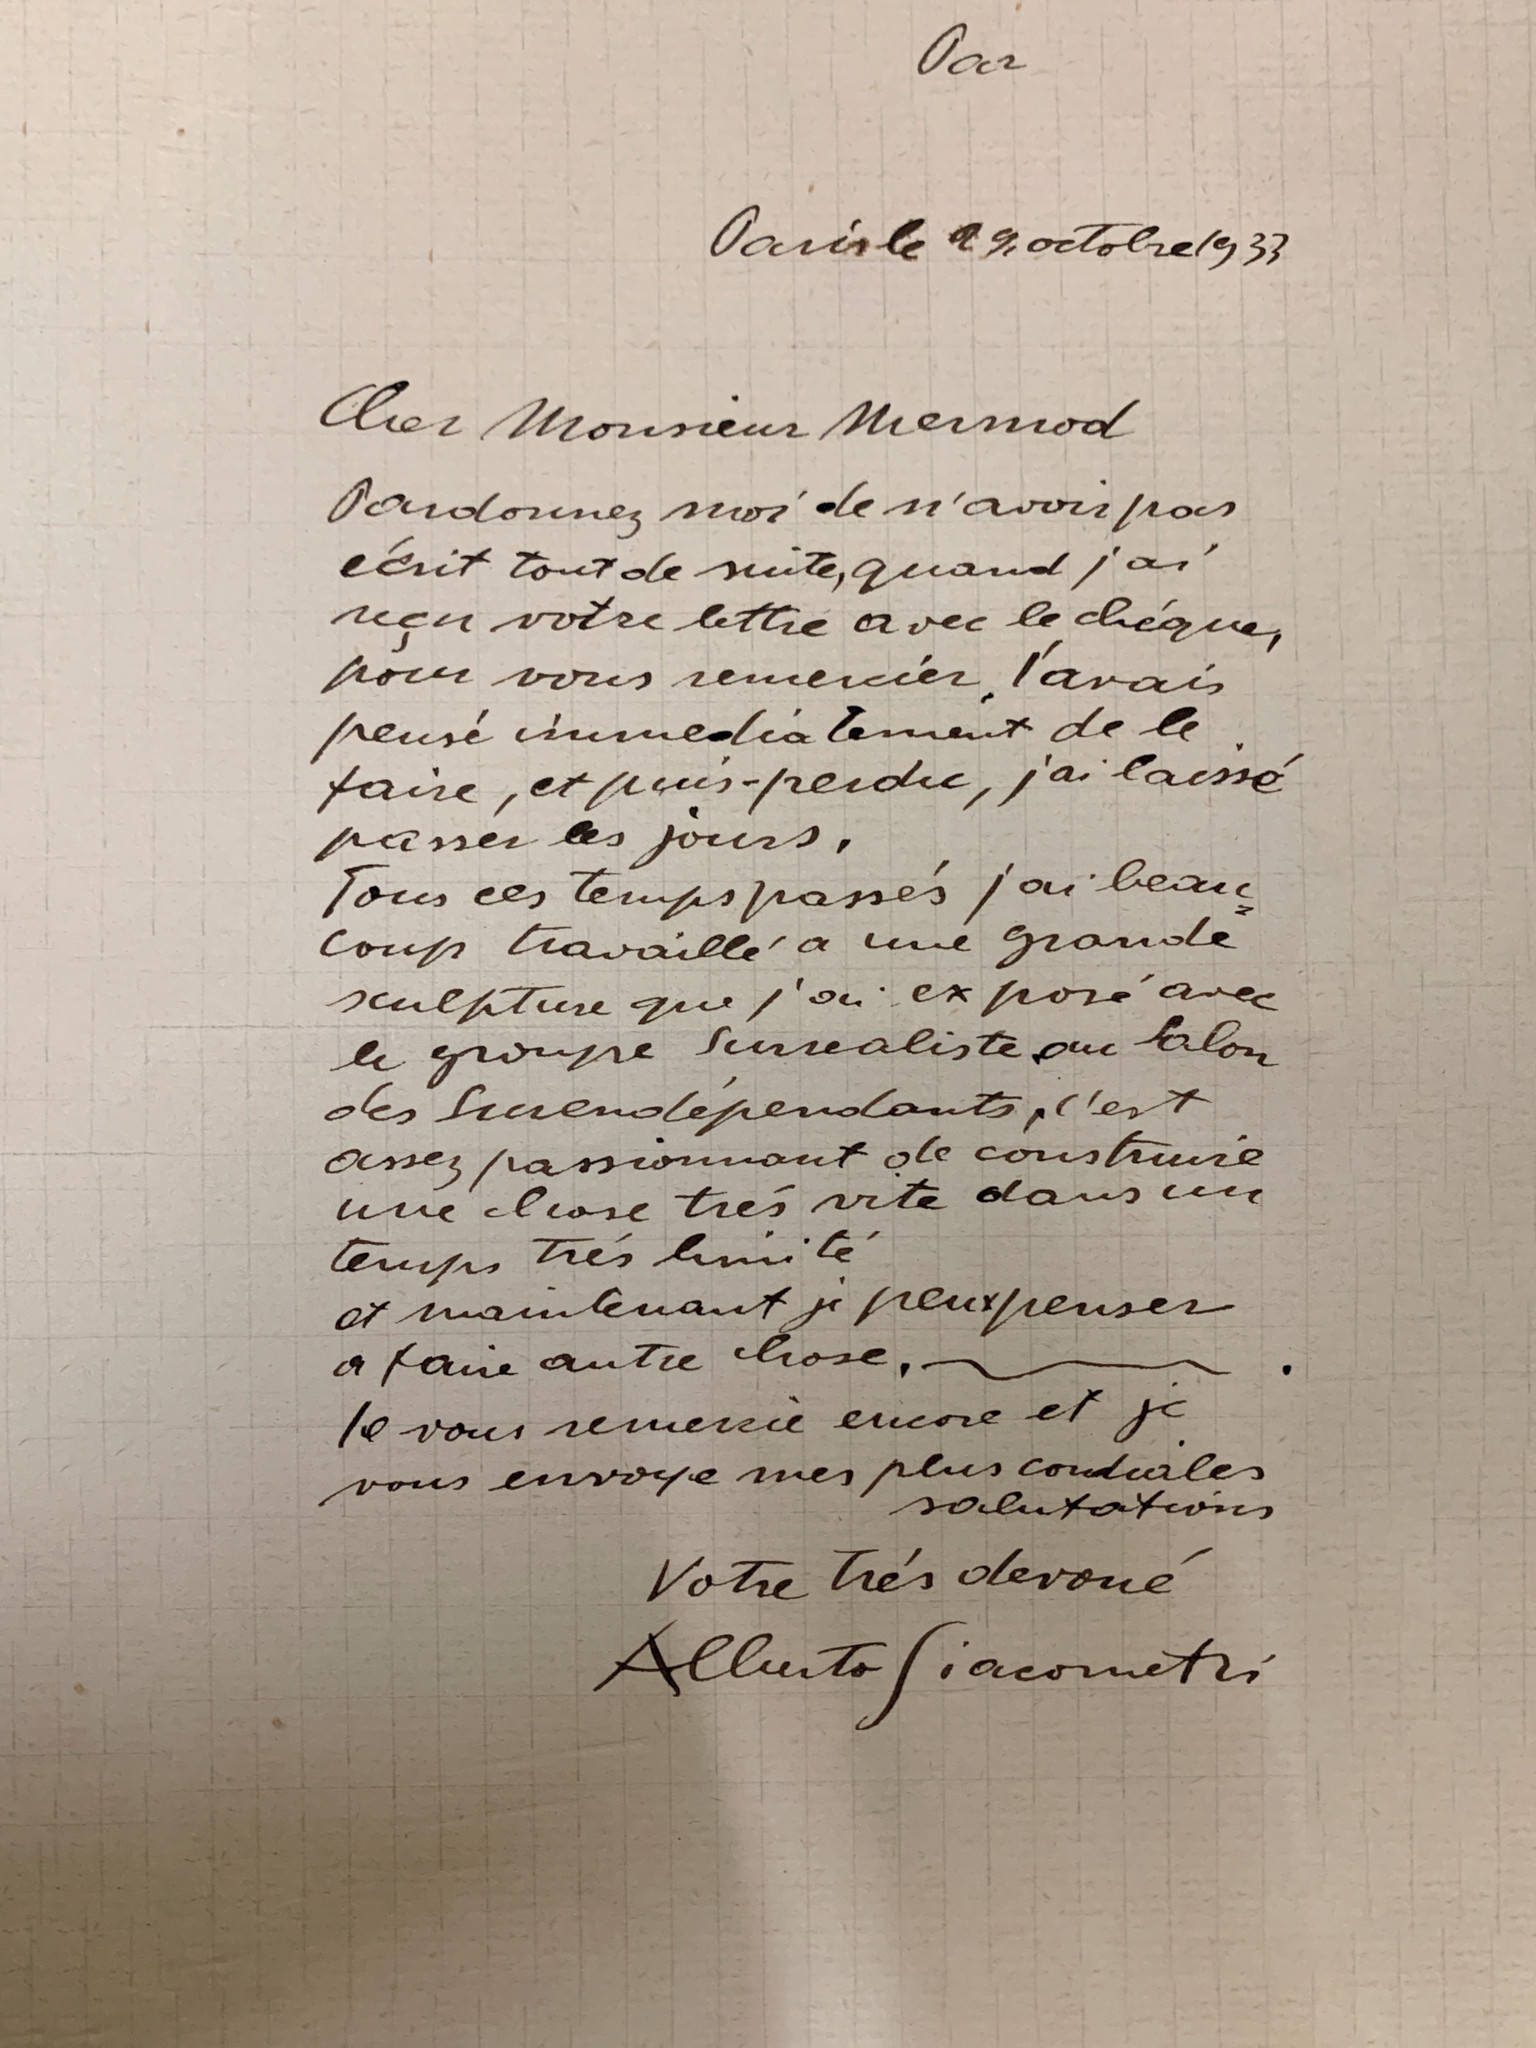 Par
Paris le 29 octobre 1933
Cher Monsieur Mermod
Pardonnez moi de n'avoir pas
écrit tout de suite, quand j'ai
reçu votre lettre avec le chéque,
pour vous remercier. J'avais
pensé immediatement de le
faire, et puis-perdu, j'ai laissé
passer les jours.
Tous ces temps passés j'ai beau=
coup travaillé a une grande
sculpture que j'ai exposé avec
le groupe Surrealiste au Salon
des Surendépendants, c'est
assez passionnant de construire
une chose trés vite dans un
temps trés limité
et maintenant je peux penser
a faire autre chose. .
Je vous remercie encore et je
vous envoye mes plus cordiales
salutations
Votre trés devoué
Alberto Giacometti